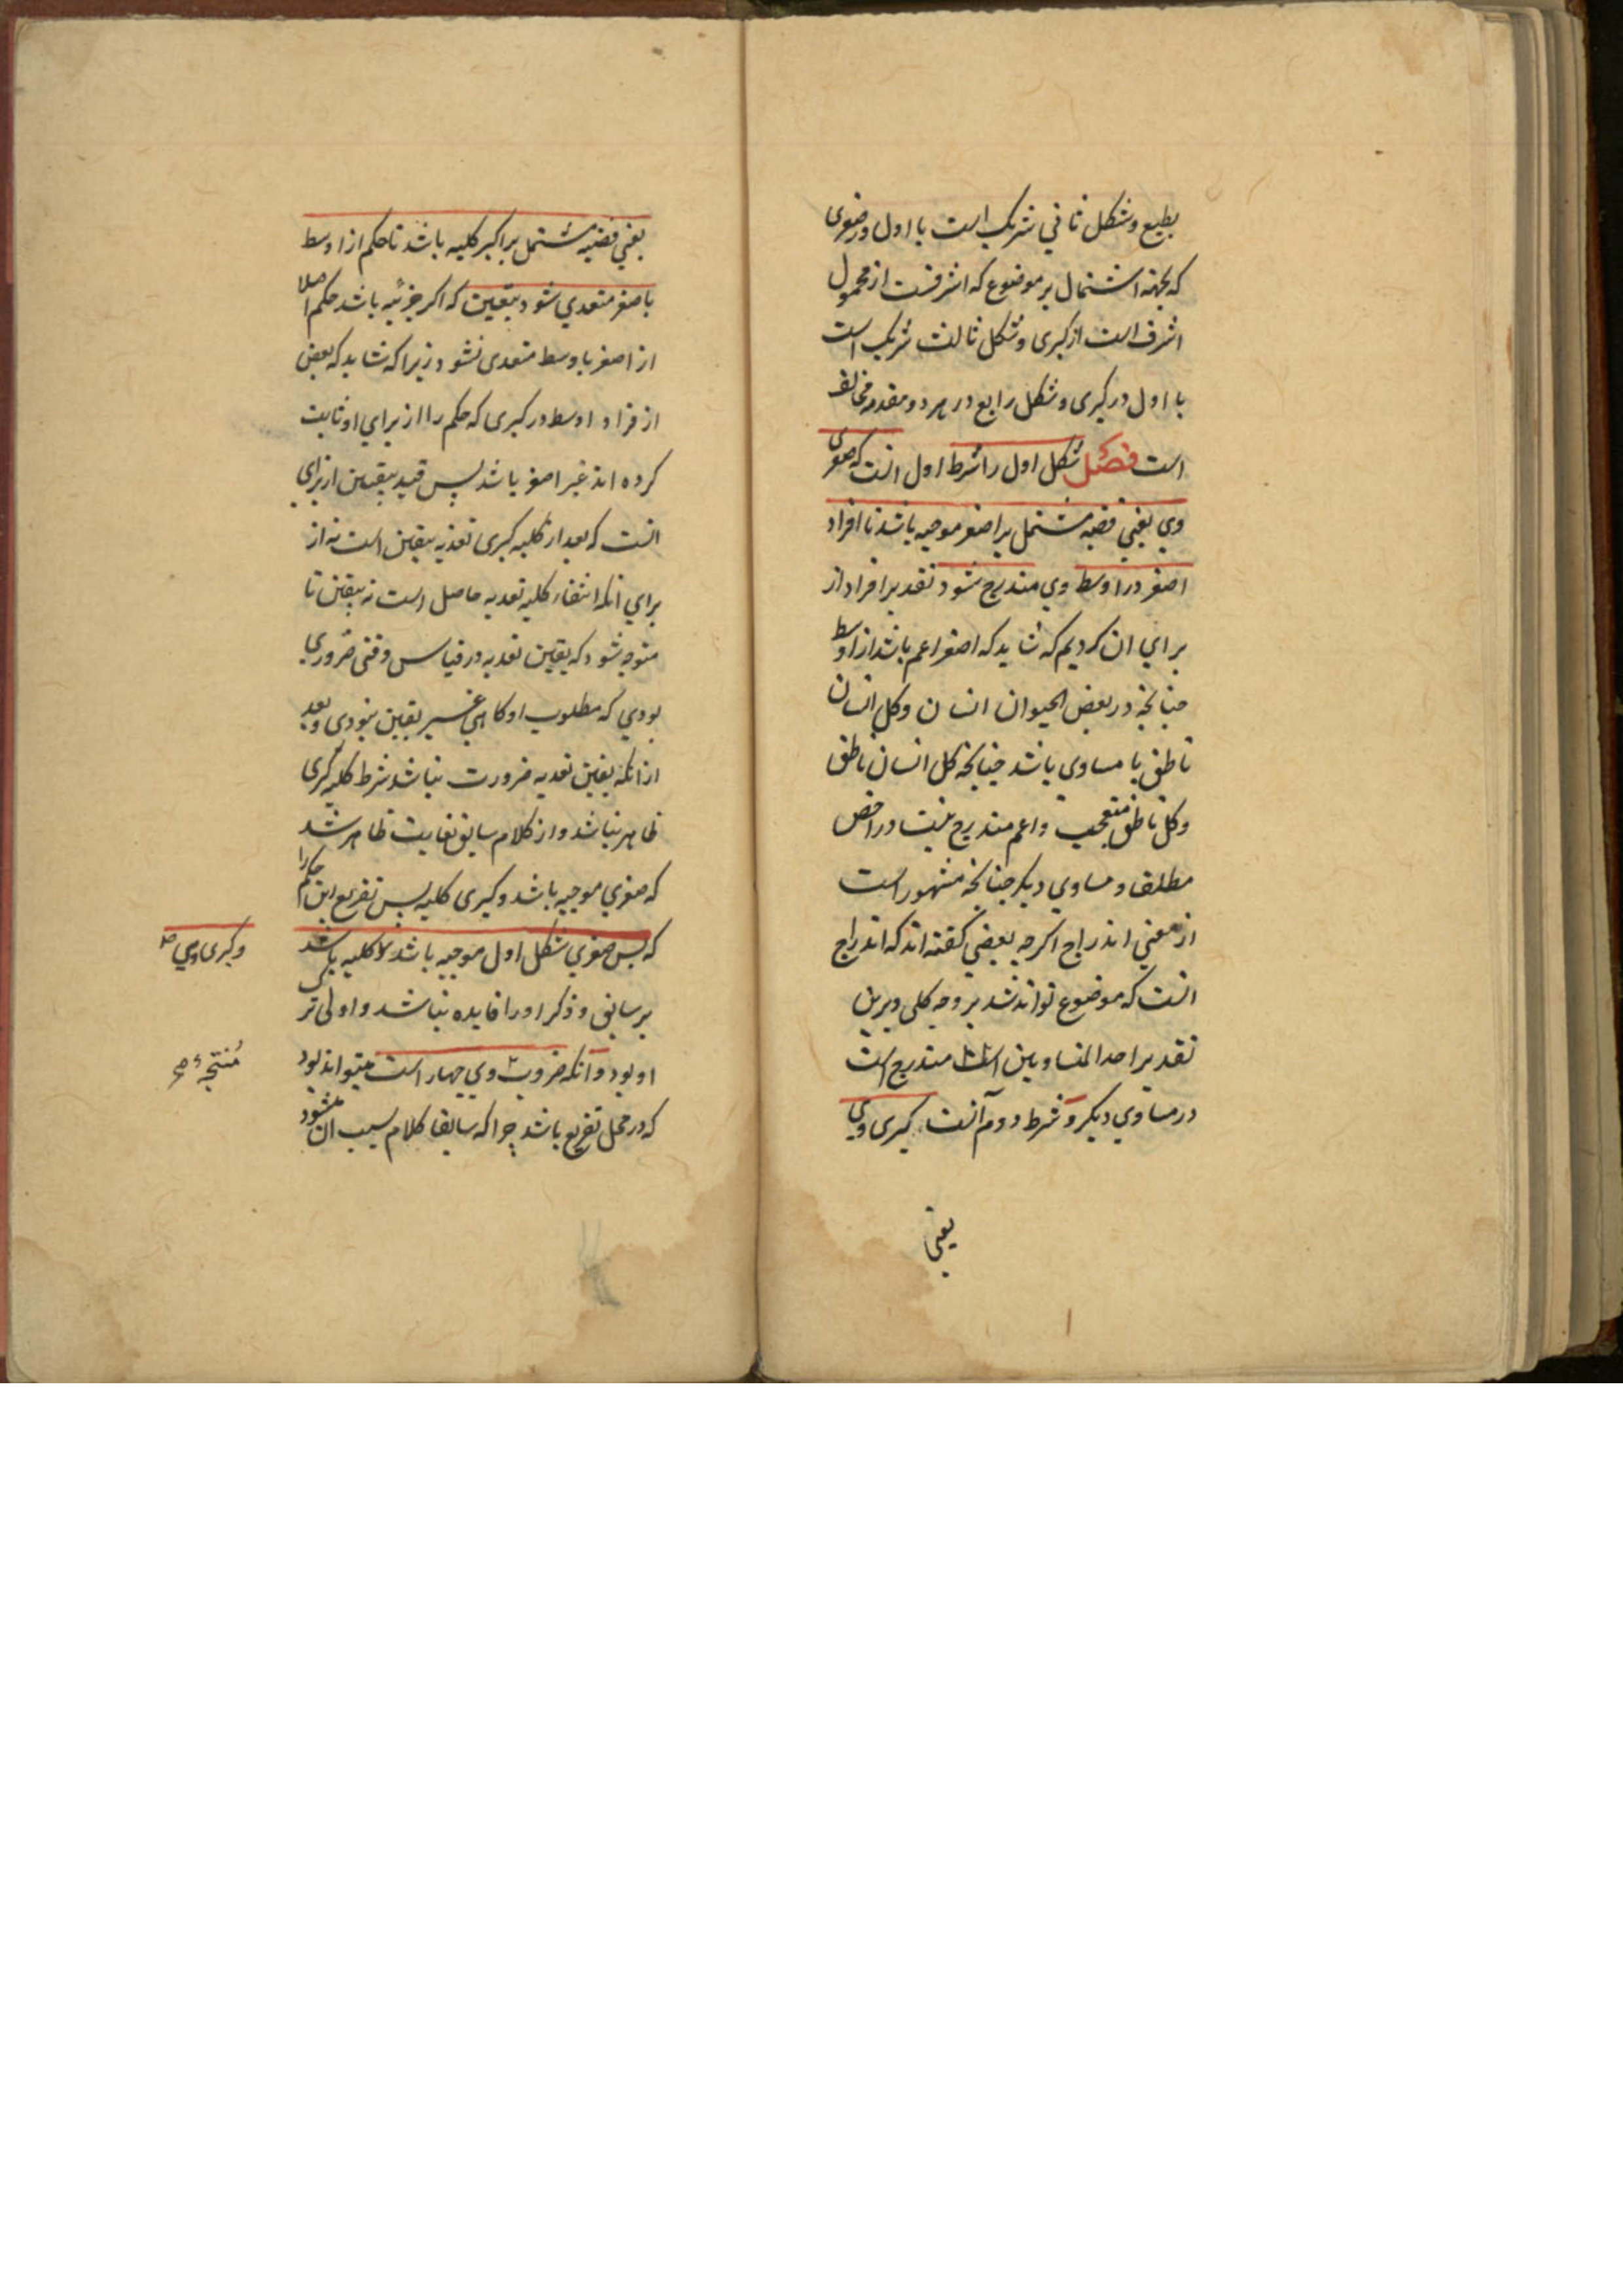 بطبع وشکل ثانی شریک است با اول در صغری
که بجهة اشتمال بر موضوع که اشرفست از محمول
اشرف است از کبری وشکل ثالث شریک است
با اول در کبری وشکل رابع در هر دو مقدمه مخالف
است فصل شکل اول را شرط اول انست که صغری
وی یعنی قضیه مشتمل بر اصغر موجبه باشد تا افراد
اصغر در اوسط وی مندرج شود تقدیر افراد از
برای ان کردیم که شاید که اصغر اعم باشد از اوسط
چنانچه در بعض الحیوان انسان وکل انسان
ناطق یا مساوی باشد چنانچه کل انسان ناطق
وکل ناطق متعجب واعم مندرج نیست در اخص
مطلقا ومساوی دیکر چنانچه مشهور است
از معنی اندراج اکرچه بعضی کفته اند که اندراج
انست که موضوع تواند شد بر وجه کلی وبرین
تقدیر احد المتساویین مندرج است
در مساوی دیکر وشرط دوم آنست کبری وی
یعنی
یعنی قضیه مشتمل بر اکبر کلیه باشد تا حکم از اوسط
باصغر متعدی شود بیقین که اکر جزئیه باشد حکم اصلا
از اصغر باوسط متعدی نشود زیرا که شاید که بعض
از افراد اوسط در کبری که حکم را از برای او ثابت
کرده اند غیر اصغر باشد پس قید بیقین از برای
انست که بعد از کلیه کبری تعدیه بیقین است نه از
برای انکه انتفاء کلیه تعدیه حاصل است نه بیقین تا
متوجه شود که یقین تعدیه در قیاس وقتی ضروری
بودی که مطلوب او کاهی غیر یقین نبودی وبعد
از انکه یقین تعدیه ضرورت نباشد شرط کلیه کبری
ظاهر نباشد واز کلام سابق بغایت ظاهر شد
که صغری موجبه باشد وکبری کلیه پس تفریع این حکم را
که پس صغری شکل اول موجبه باشد کلیه باشد
وکبری وی
بر سابق وذکر او را فایده نباشد واولی تر
او بود وآنکه ضروب وی چهار است میتواند بود
منتجه
که در محل تفریع باشد چرا که سابقا کلام سبب ان نشود